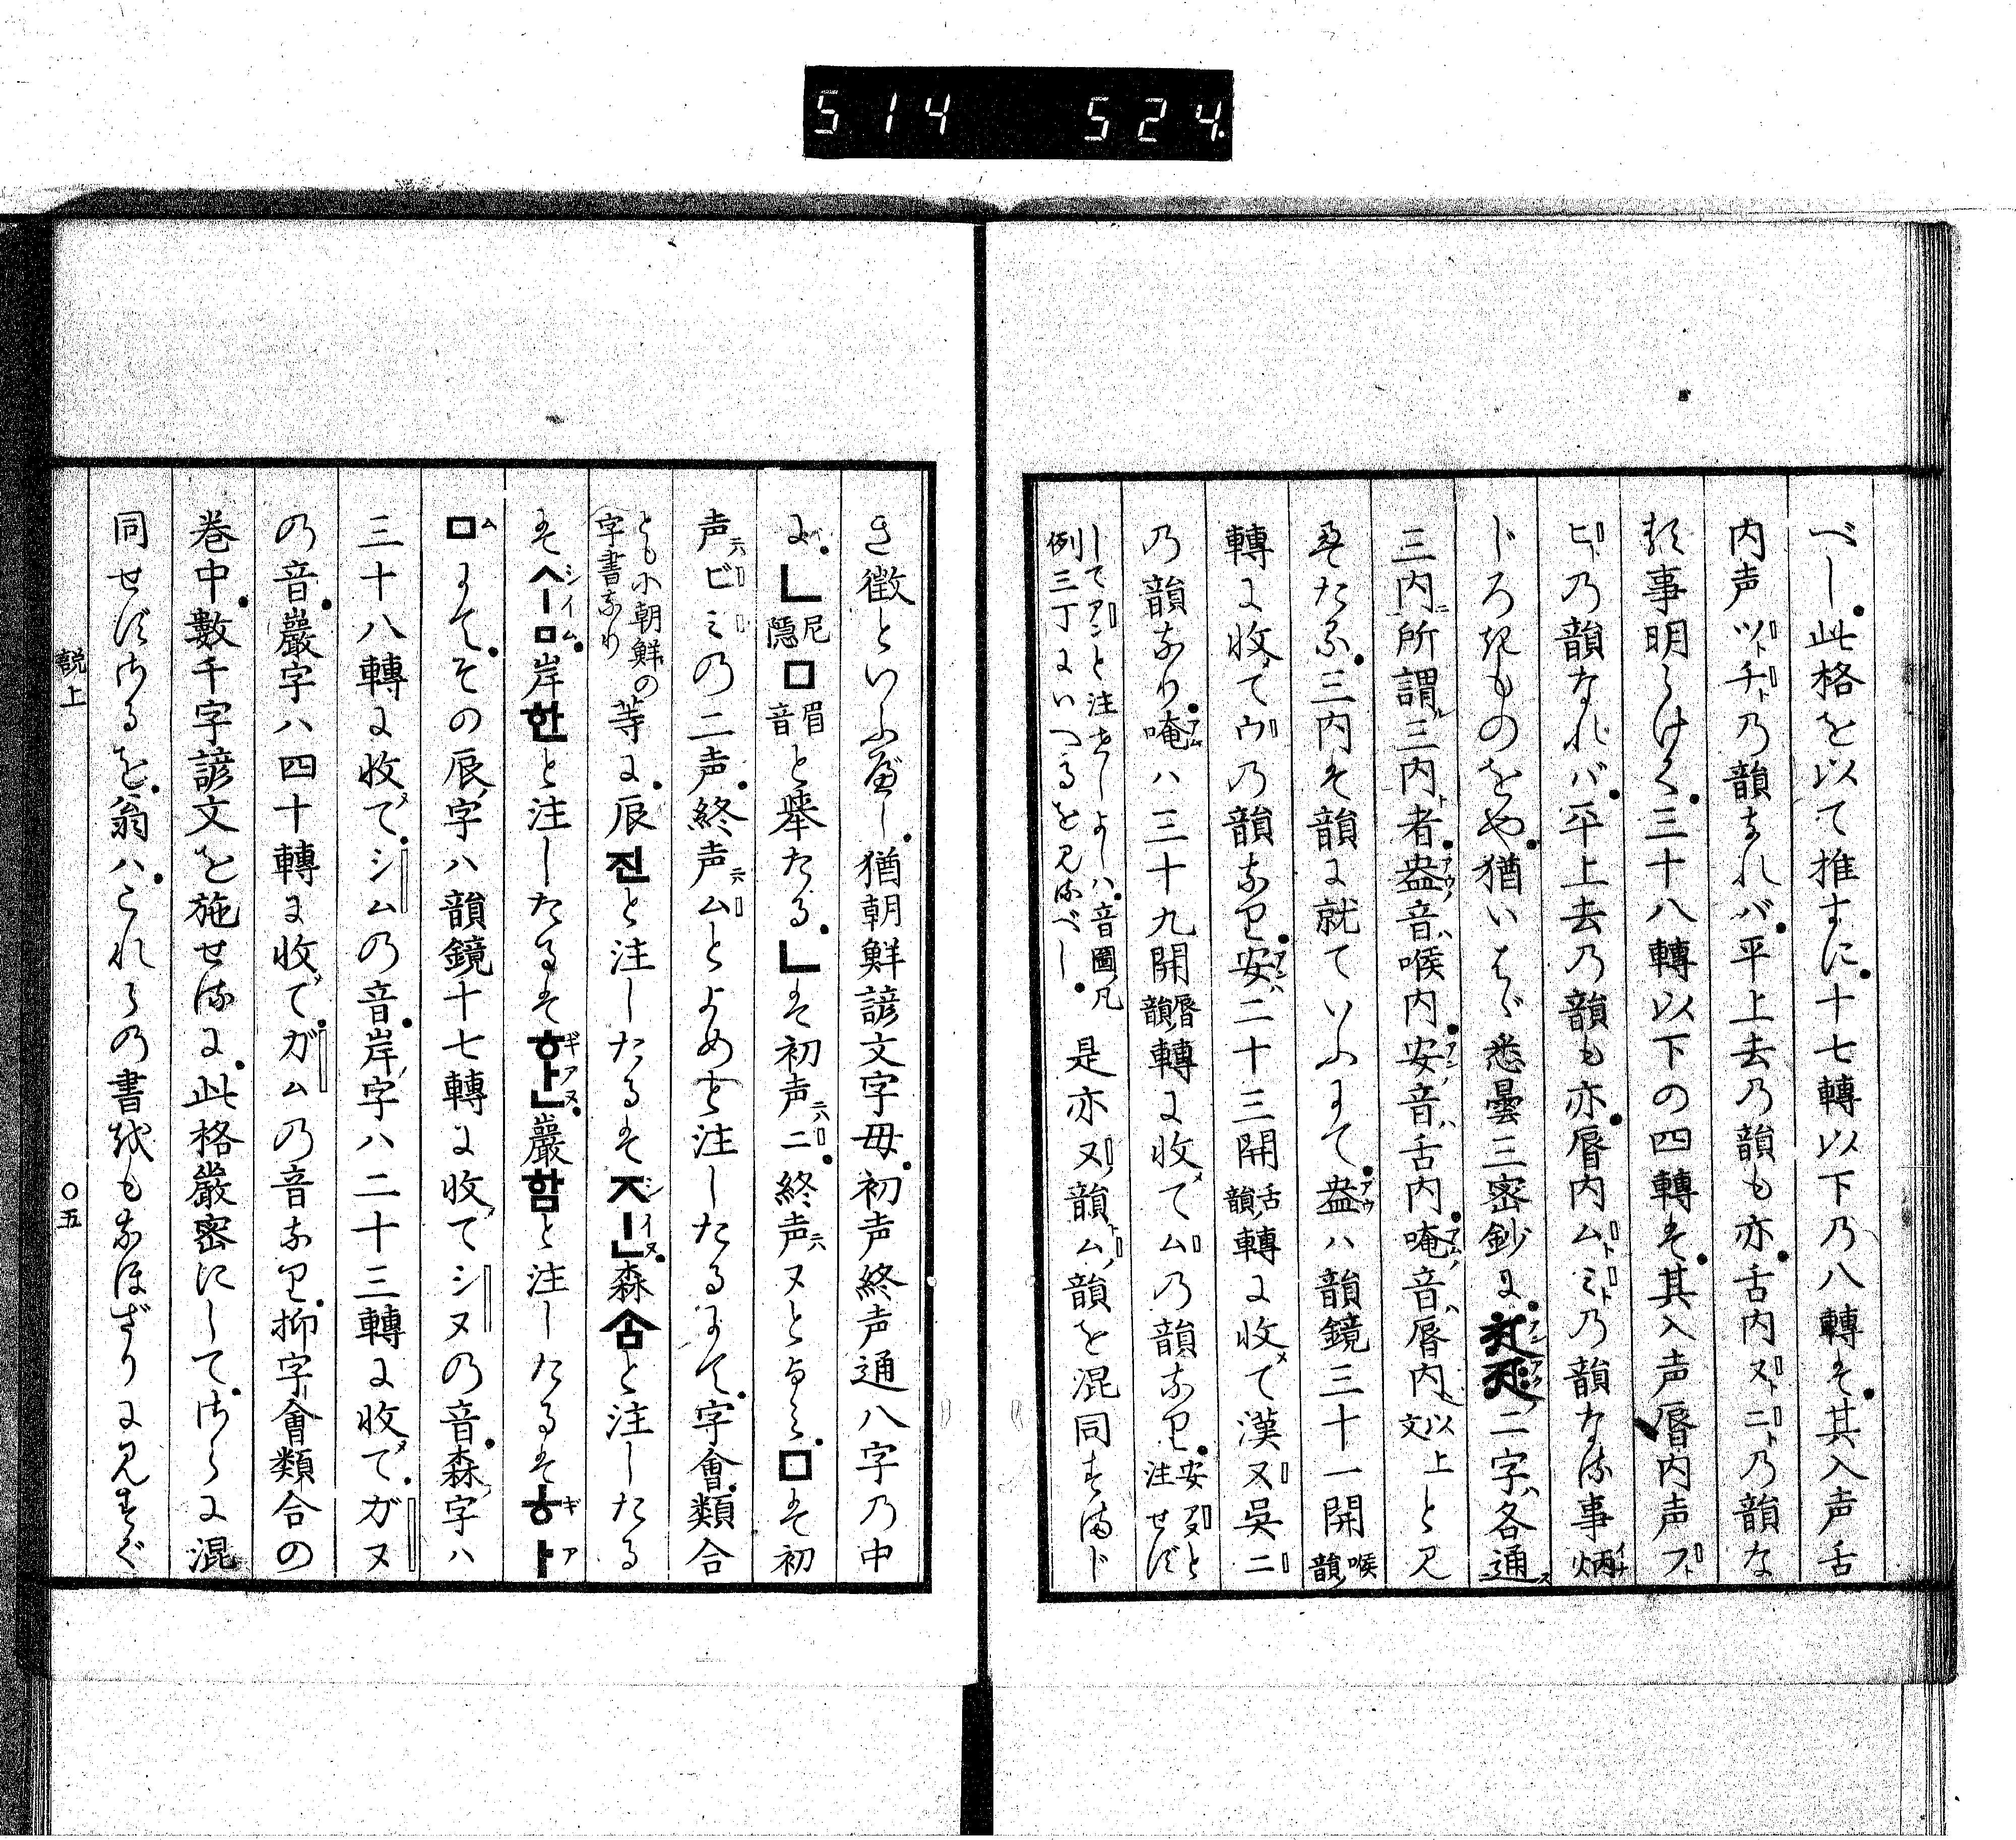 514 524
べし。此格を以て推すに。十七轉以下乃八轉は。其入声舌
内声ツトチト乃韻なれバ。平上去乃韻も亦。舌内ヌトニト乃韻な
る事明らけく。三十八轉以下の四轉は。其入声唇内声フト
ヒト乃韻なれバ。平上去乃韻も亦。唇内ムトミト乃韻なる事炳
じろきものをや。猶いはゞ悉曇三密鈔に。二字各通
三内所謂三内者。盎音喉内。安音舌内。唵音唇内以上文と見
えたる。三内は韻に就ていふにて。盎ハ韻鏡三十一開喉韻
轉に收てウ乃韻なり。安ハ二十三開舌韻轉に收て漢ヌ吴ニ
乃韻なり。唵ハ三十九開唇韻轉に收てム乃韻なり。安アヌと注せず
してアンと注せしよしハ。音圖凡例三丁にいへるを見るべし。是亦ヌ韻ム韻を混同すまじ
き徴といふべし。猶朝鮮諺文字母。初声終声通八字乃中
に。ㄴ尼隱ㅁ眉音と舉たる。ㄴは初声ニ。終声ヌとなる。ㅁは初
声ビミの二声。終声ムとよめと注したるにて。字會類合
とも小朝鮮の字書なり等に。辰진と注したるはㅈㅣㄴシイヌ。森솜と注したる
はㅅㅣㅁシイム。岸한と注したるはㅎㅏㄴギアヌ。巖함と注したるはㅎㅏギア
ㅁムにて。その辰字ハ韻鏡十七轉に收てシヌの音。森字ハ
三十八轉に收て。シムの音。岸字ハ二十三轉に收て。ガヌ
の音。巖字ハ四十轉に收て。ガムの音なり。抑字會類合の
巻中。數千字諺文を施せるに。此格嚴密にして。さらに混
同せざるを。翁ハ。これらの書をもなほざりに見すぐ
説上 〇五